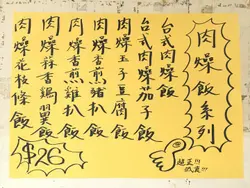 肉燥飯系列
台式肉燥飯
台式肉燥茄子飯
肉燥玉子豆腐飯
肉燥香煎豬扒飯
肉燥香煎雞扒飯
肉燥蒜香鴨胸飯
肉燥花枝條飯
$26
超正!!!
抵食!!!